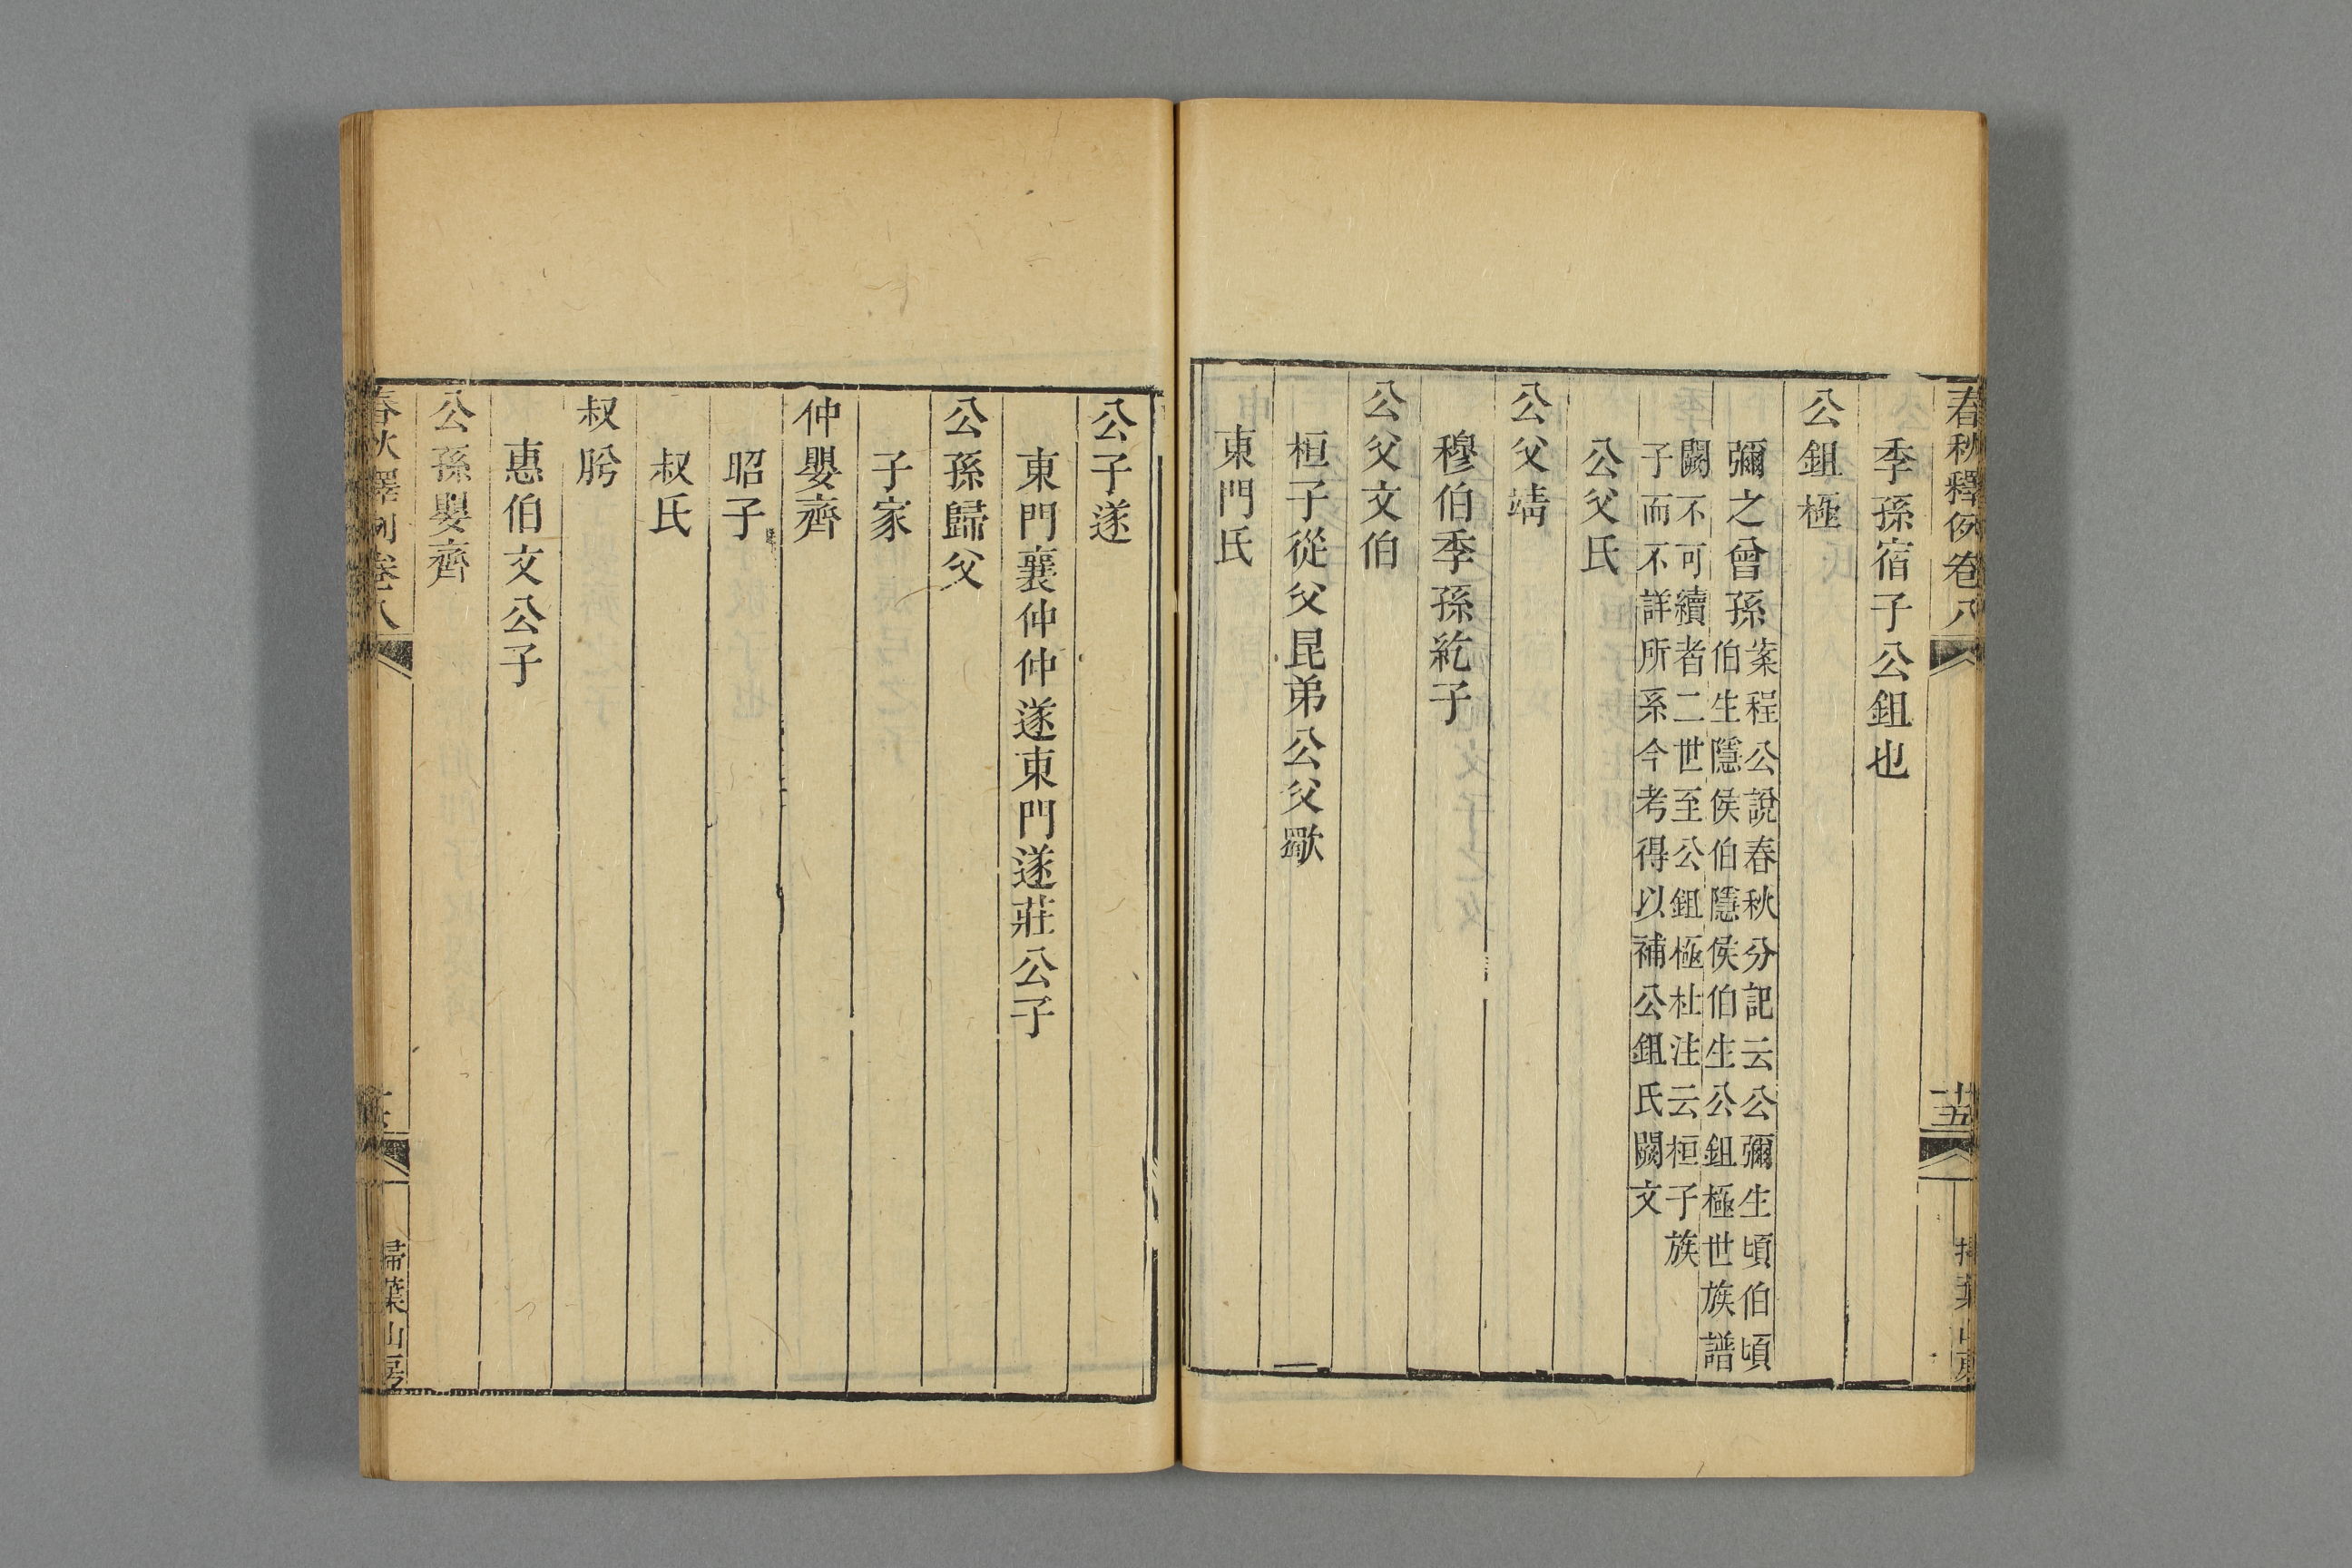 春秋釋例卷八
十五
季孫宿子公鉏也
公鉏極
彌之曾孫
案程公說春秋分記云公彌生頃伯頃
伯生隱侯伯隱侯伯生公鉏極世族譜
闕不可續者二世至公鉏極杜注云桓子族
子而不詳所系今考得以補公鉏氏闕文
公父氏
公父靖
穆伯季孫紇子
公父文伯
桓子從父昆弟公父歜
東門氏
公子遂
東門襄仲仲遂東門遂莊公子
公孫歸父
子家
仲嬰齊
昭子
叔氏
叔肹
惠伯文公子
公孫嬰齊
春秋釋例卷八
掃葉山房